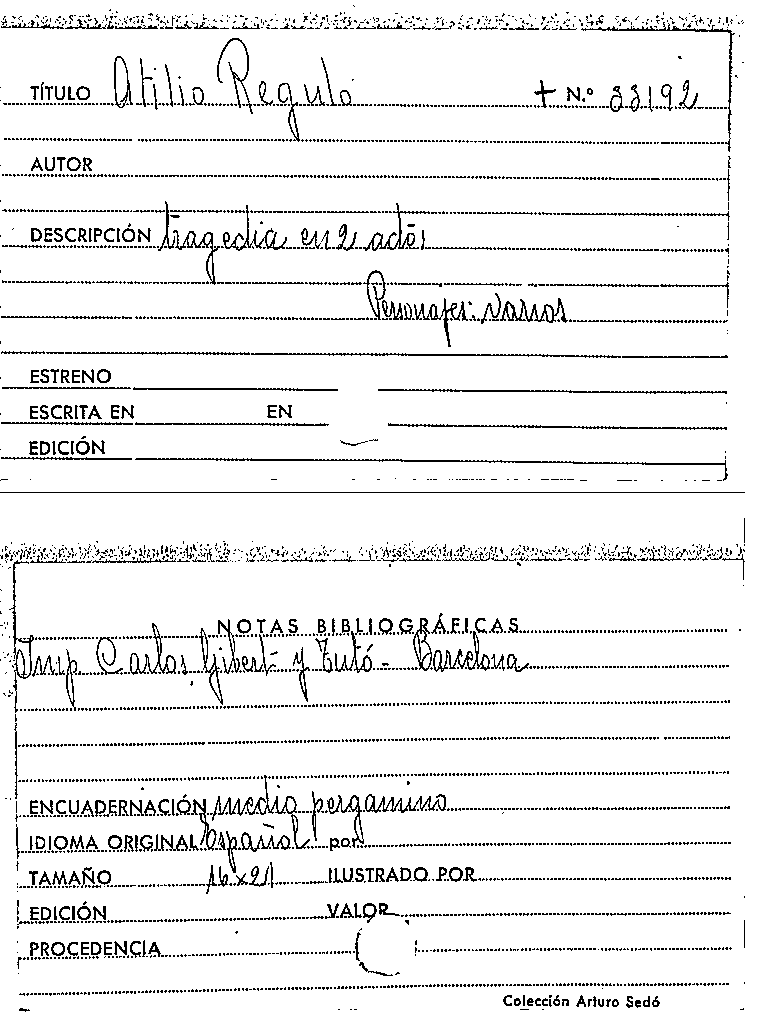 TÍTULO Atilio Regulo + N.º 33192
AUTOR
DESCRIPCIÓN tragedia en 2 actos
Personajes: varios
ESTRENO
ESCRITA EN EN
EDICIÓN
NOTAS BIBLIOGRÁFICAS
Imp. Carlos Gibert y Tutó - Barcelona
ENCUADERNACIÓN medio pergamino
IDIOMA ORIGINAL Español por
TAMAÑO 16x21 ILUSTRADO POR
EDICIÓN VALOR
PROCEDENCIA
Colección Arturo Sedó